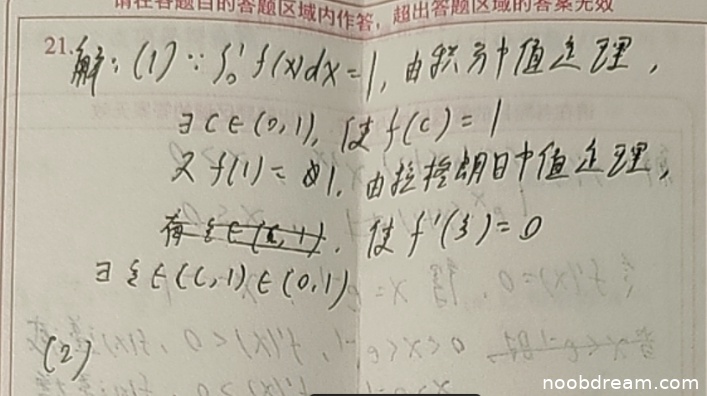 请在各题目的答题区域内作答，超出答题区域的答案无效
21. 解：(1) ∵ ∫₀¹ f(x)dx=1，由积分中值定理，
∃ c∈(0,1)，使 f(c)=1
又 f(1)=1，由拉格朗日中值定理，
有 ξ∈(c,1)，使 f'(ξ)=0
∃ ξ∈(c,1)∈(0,1)
(2)
noobdream.com